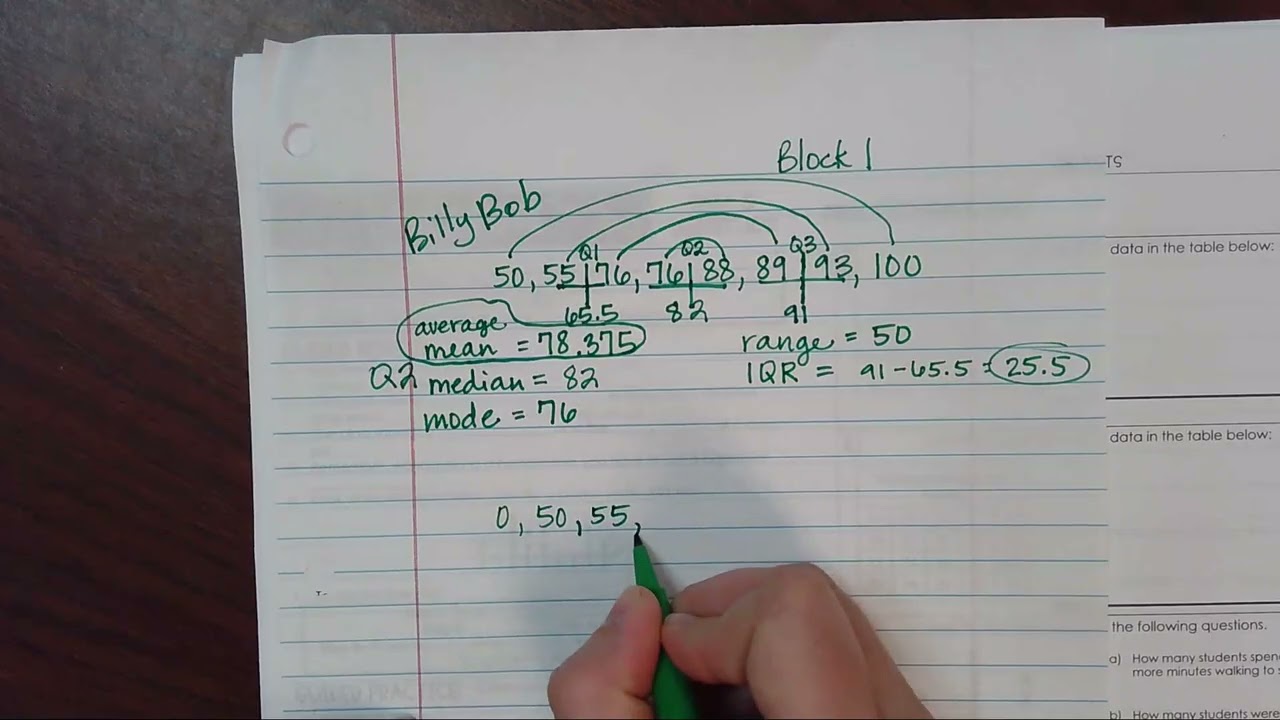 Block 1
TS
Billy Bob
Q1 Q2 Q3
50, 55 76, 76 88, 89 93, 100
65.5 82 91
average
mean = 78.375
range = 50
Q2 median = 82
IQR = 91-65.5 = 25.5
mode = 76
0, 50, 55,
data in the table below:
data in the table below:
the following questions.
a) How many students spen
more minutes walking to s
b) How many students were